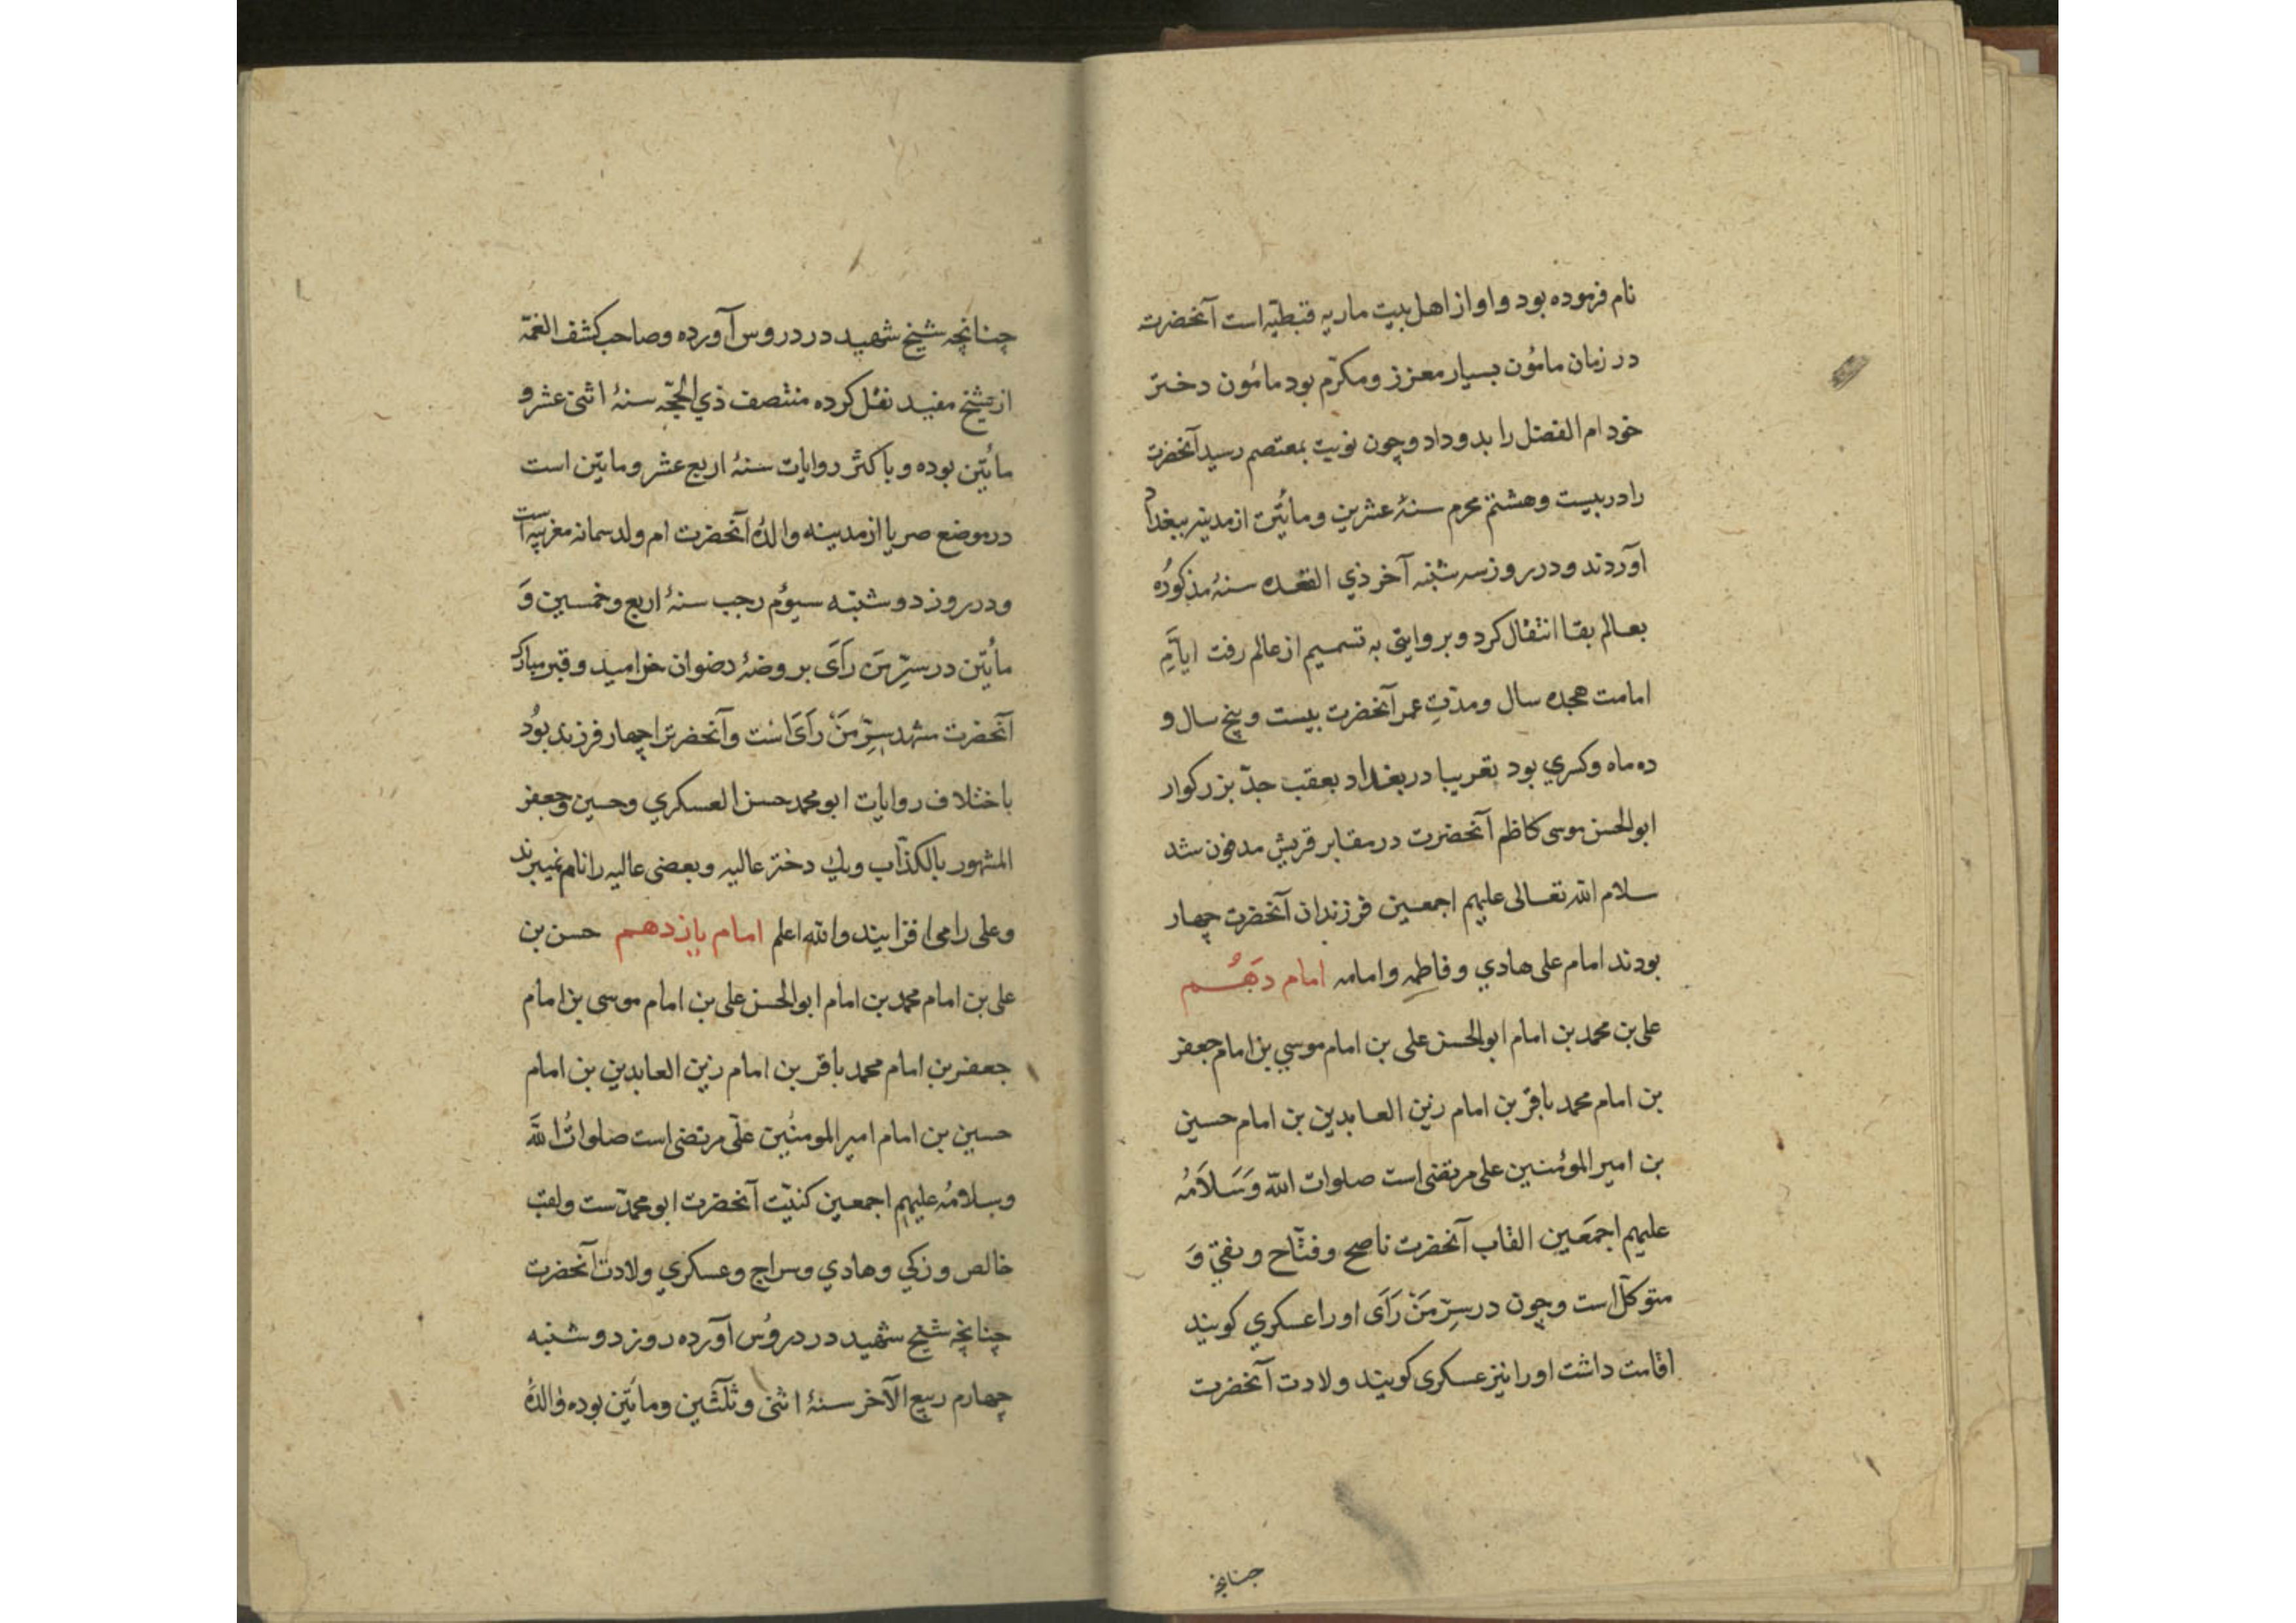 نام فرموده بود و او از اهل بیت ماریه قبطیّه است آنحضرت
در زمان مأمون بسیار معزز و مکرّم بود مأمون دختر
خود ام الفضل را بدو داد و چون نوبت بمعتصم رسید آنحضرت
را در بیست و هشتم محرم سنهٔ عشرین و مأتین از مدینه ببغداد
آوردند و در روز سه شنبه آخر ذي القعده سنهٔ مذکوره
بعالم بقا انتقال کرد و بروایتی به تسمیم از عالم رفت ایّام
امامت هجده سال و مدّت عمر آنحضرت بیست و پنج سال و
ده ماه و کسري بود تقریبا در بغداد بعقب جدّ بزرکوار
ابوالحسن موسی کاظم آنحضرت در مقابر قریش مدفون شد
سلام الله تعالی علیهم اجمعین فرزندان آنحضرت چهار
بودند امام علی هادي و فاطمه و امامه امام دَهُم
علی بن محمد بن امام ابوالحسن علی بن امام موسي بن امام جعفر
بن امام محمد باقر بن امام زین العابدین بن امام حسین
بن امیر الموئمنین علی مرتضی است صلوات اللّه وَسَلَامُه
علیهم اجمَعین القاب آنحضرت ناصح و فتّاح و نقي وَ
متوکلّ است و چون در سِرّ مَنْ رَآَی او را عسکري کویند
اقامت داشت او را نیز عسکری کویند ولادت آنحضرت
چنانچه
چنانچه شیخ شهید در دروس آورده و صاحب کشف الغمّه
از شیخ مفید نقل کرده منتصف ذي الحجّه سنهٔ اثنی عشر و
مأتین بوده و باکثر روایات سنهٔ اربع عشر و مایتین است
در موضع صریا از مدینه والدهٔ آنحضرت ام ولد سمانه مغربیه است
و در روز دوشنبه سیوم رجب سنهٔ اربع و خمسین وَ
مأتین در سِرّ مَن رَآَی بروضهٔ رضوان خرامید و قبر مبارک
آنحضرت مشهد سِرّ مَنْ رَآَی است و آنحضرترا چهار فرزند بود
باختلاف روایات ابو محمد حسن العسکري و حسین و جعفر
المشهور بالکذّاب و یك دختر عالیه و بعضی عالیه را نام نمیبرند
و علی را می افزایند و الله اعلم امام یازدهم حسن بن
علی بن امام محمد بن امام ابوالحسن علی بن امام موسی بن امام
جعفر بن امام محمد باقر بن امام زین العابدین بن امام
حسین بن امام امیر المومنین علّی مرتضی است صلواتُ اللَّه
و سلامُه علیهم اجمعین کنیّت آنحضرت ابو محمدّست و لقب
خالص و زکي و هادي و سراج و عسکري ولادت آنحضرت
چنانچه شیخ شهید در دروُس آورده روز دوشنبه
چهارم ربیع الآخر سنهٔ اثنی و ثلثین و مأتین بوده والدهٔ